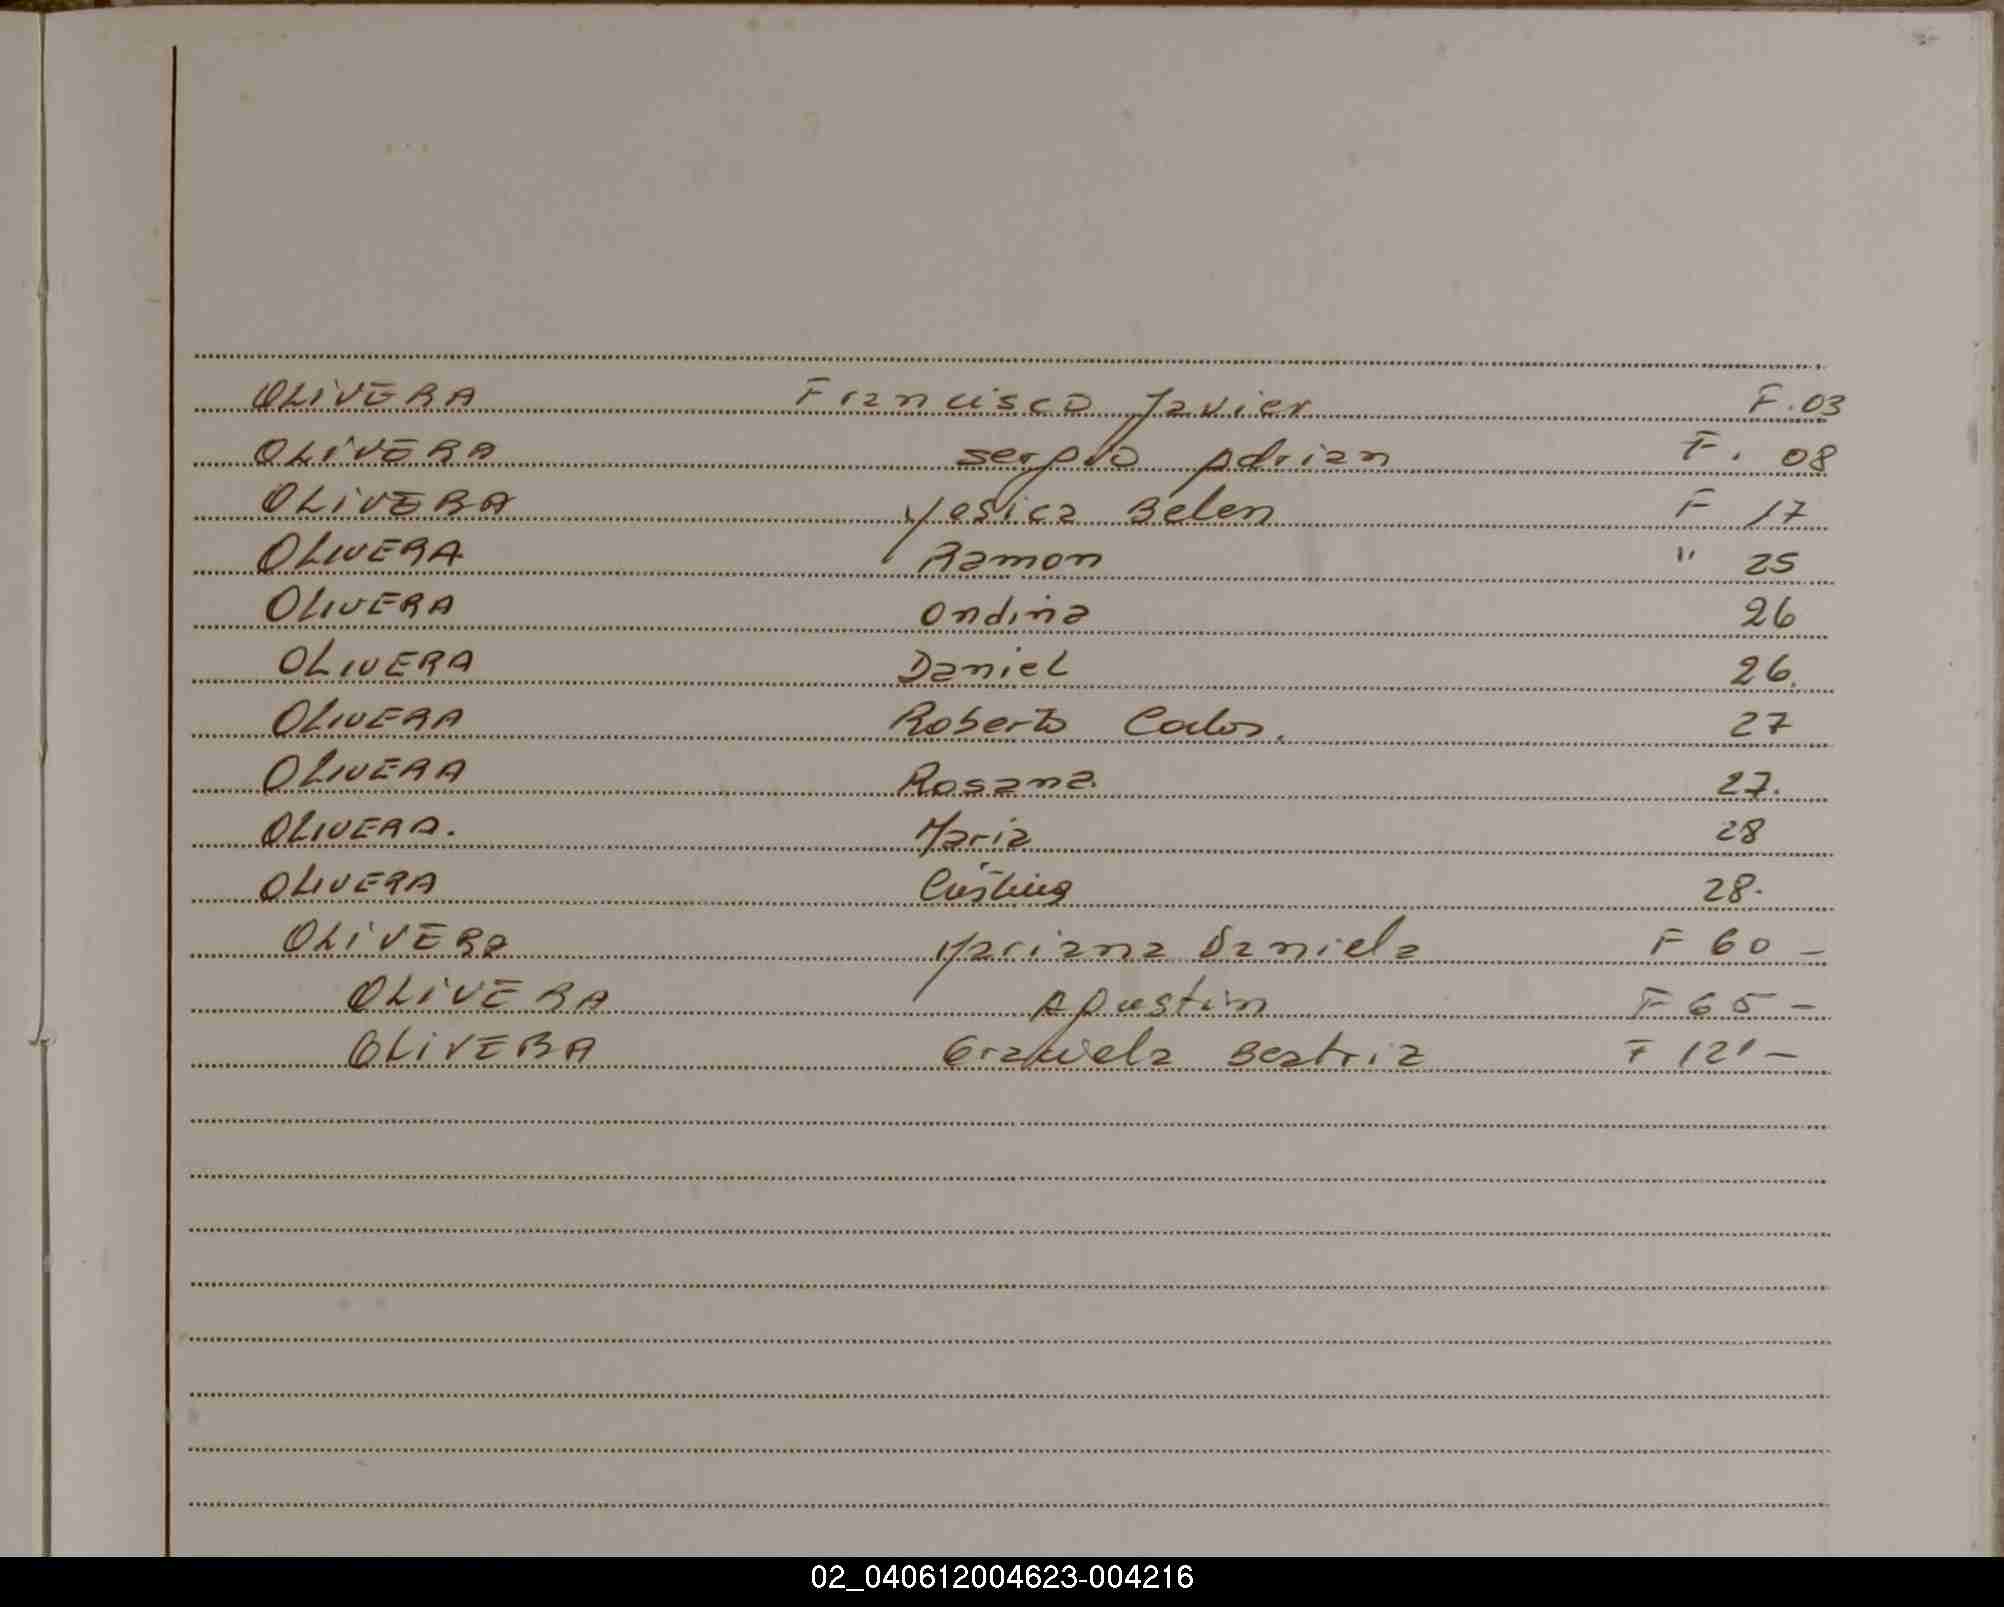 OLIVERA Francisco Javier F.03
OLIVERA sergio Adrian F. 08
OLIVERA Yesica Belen F 17
OLIVERA Ramon " 25
OLIVERA Ondina 26
OLIVERA Daniel 26.
OLIVERA Roberto Carlos. 27
OLIVERA Rosana. 27.
OLIVERA. Maria 28
OLIVERA Cristina 28.
OLIVERA Mariana Daniela F 60 -
OLIVERA Agustin F 65 -
OLIVERA Graciela Beatriz F 121 -
02_040612004623-004216